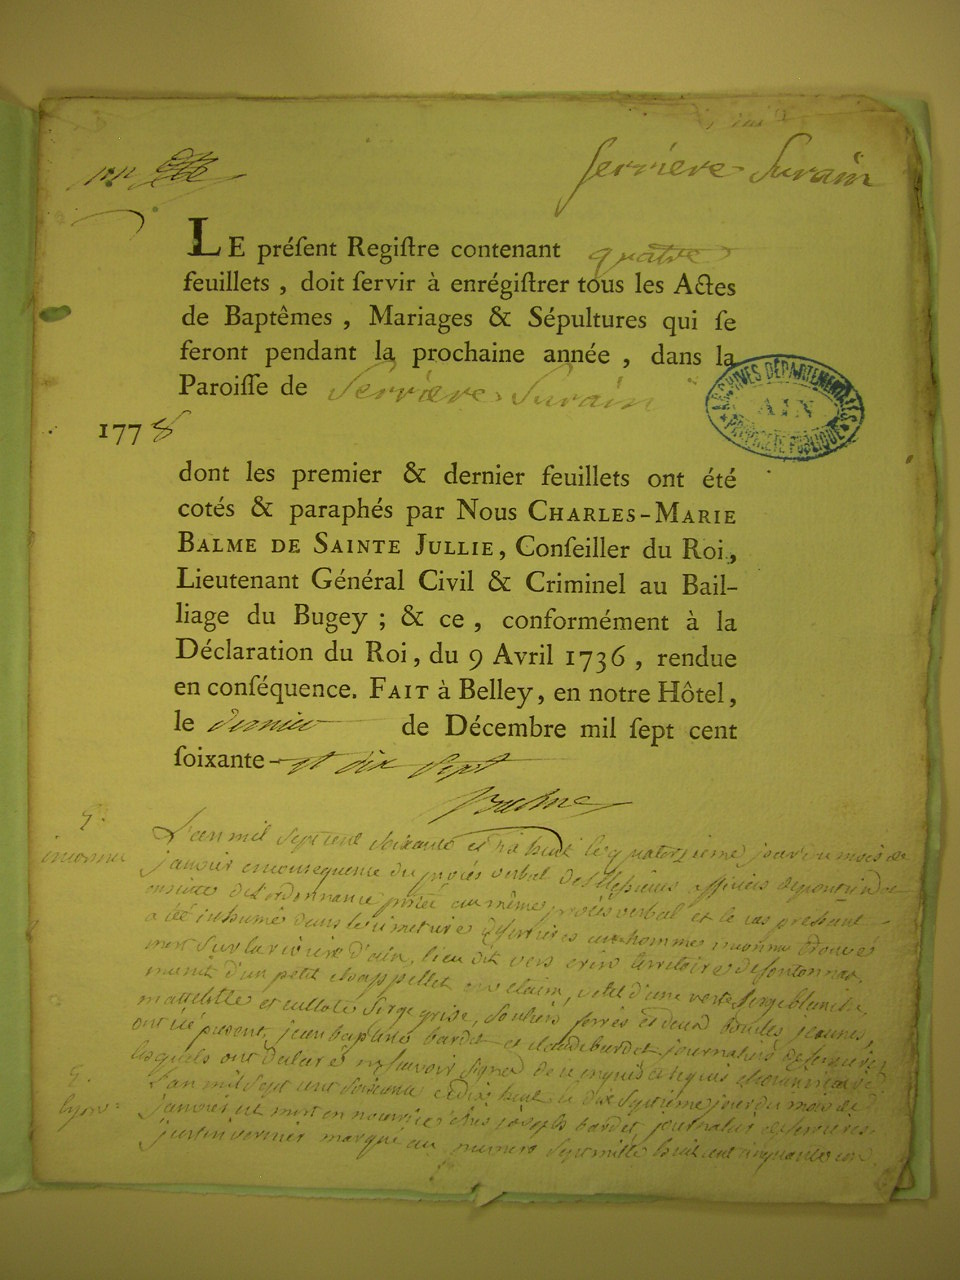 Serriere Surain
LE préſent Regiſtre contenant quatre
feuillets , doit ſervir à enrégiſtrer tous les Actes
de Baptêmes , Mariages & Sépultures qui ſe
feront pendant la prochaine année , dans la
Paroiſſe de Serriere Surain
ARCHIVES DÉPARTEMENTALES
AIN
PROPRIÉTÉ PUBLIQUE
1778
dont les premier & dernier feuillets ont été
cotés & paraphés par Nous CHARLES-MARIE
BALME DE SAINTE JULLIE, Conſeiller du Roi,
Lieutenant Général Civil & Criminel au Bail-
liage du Bugey ; & ce , conformément à la
Déclaration du Roi, du 9 Avril 1736 , rendue
en conſéquence. FAIT à Belley, en notre Hôtel,
le dernier de Décembre mil ſept cent
ſoixante- et dix sept
Balme
S.
inconnu
L'an mil sept cent soixante et dix huit le quatorzieme jour du mois de
janvier en consequence du procés verbal de Messieurs officiers de pont
ensuitte de l'ordonnance au même procés verbal et le cas present
a été inhumé dans le cimetiere de Serrieres un homme inconnu trouvé
mort sur la riviere d'ain, lieu dit vers territoire de
munit d'un petit chappellet , vetu d'une veste Serge blanche,
mattelotte et cullote Serge grise, Souliers ferrés et deux boucles jeaunes,
ont été present, jean baptiste bardet et claude bardet journaliers de Serrieres
lesquels ont declaré ne sçavoir signer de ce enquis et requis
S.
lyon
L'an mil sept cent soixante et dix huit le dix Septieme jour du mois de
janvier est mort en nourrice chés joseph bardet journalier de Serrieres
justin marqué au numero Sept mille huit cent cinquante un